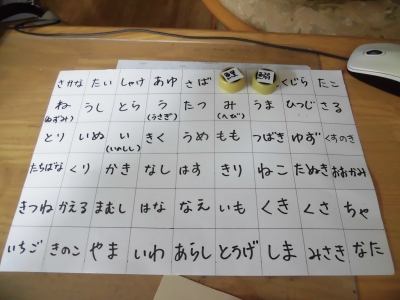 さかな たい しゃけ あゆ さば くじら たこ
ね うし とら う たつ み うま ひつじ さる
(ねずみ) (うさぎ) (へび)
とり いぬ い きく うめ もも つばき ゆず くすのき
(いのしし)
たちばな くり かき なし はす きり ねこ たぬき おおかみ
きつね かえる まむし はな なえ いも くき くさ ちゃ
いちご きのこ やま いわ あらし とうげ しま みさき なた